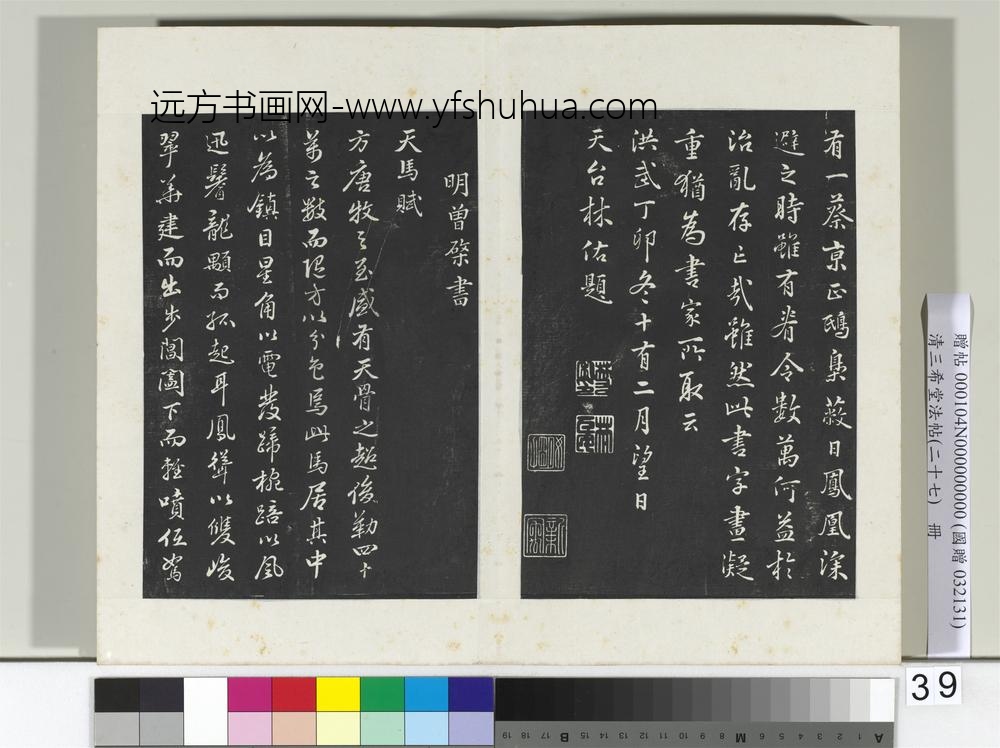 远方书画网-www.yfshuhua.com
有一蔡京正鴟梟蔽日鳳凰深
避之時雖有眷令數萬何益於
治亂存亡哉雖然此書字畫凝
重猶為書家所取云
洪武丁卯冬十有二月望日
天台林佑題
明曾棨書
天馬賦
方唐牧之至盛有天骨之超俊勒四十
萬之數而隨方以分色焉此馬居其中
以為鎮目星角以電發蹄椀踣以風
迅鬐龍顒而孤起耳鳳聳以雙峻
翠華建而出步閶闔下而輕噴低駑
贈帖 000104N000000000 (國贈 032131)
清三希堂法帖(二十七) 冊
39
A 1 2 3 4 5 6 M 8 9 10 11 12 13 14 15 B 17 18 19